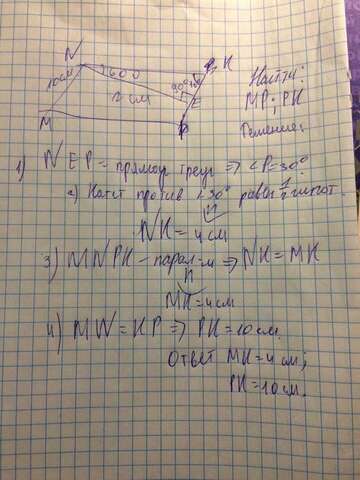 N
K
10см
60°
90°
2 см
E
M
P
Найти:
MP; PK
Решение:
1) NEP - прямоу треуг ⇒ ∠P=30°
2) Катет против ∠30° равен 1/2 гипот.
NK=4см
3) MNPK - парал-м ⇒ NK=MK
MK=4см
4) MN=KP ⇒ PK=10см.
Ответ MK=4см;
PK=10см.